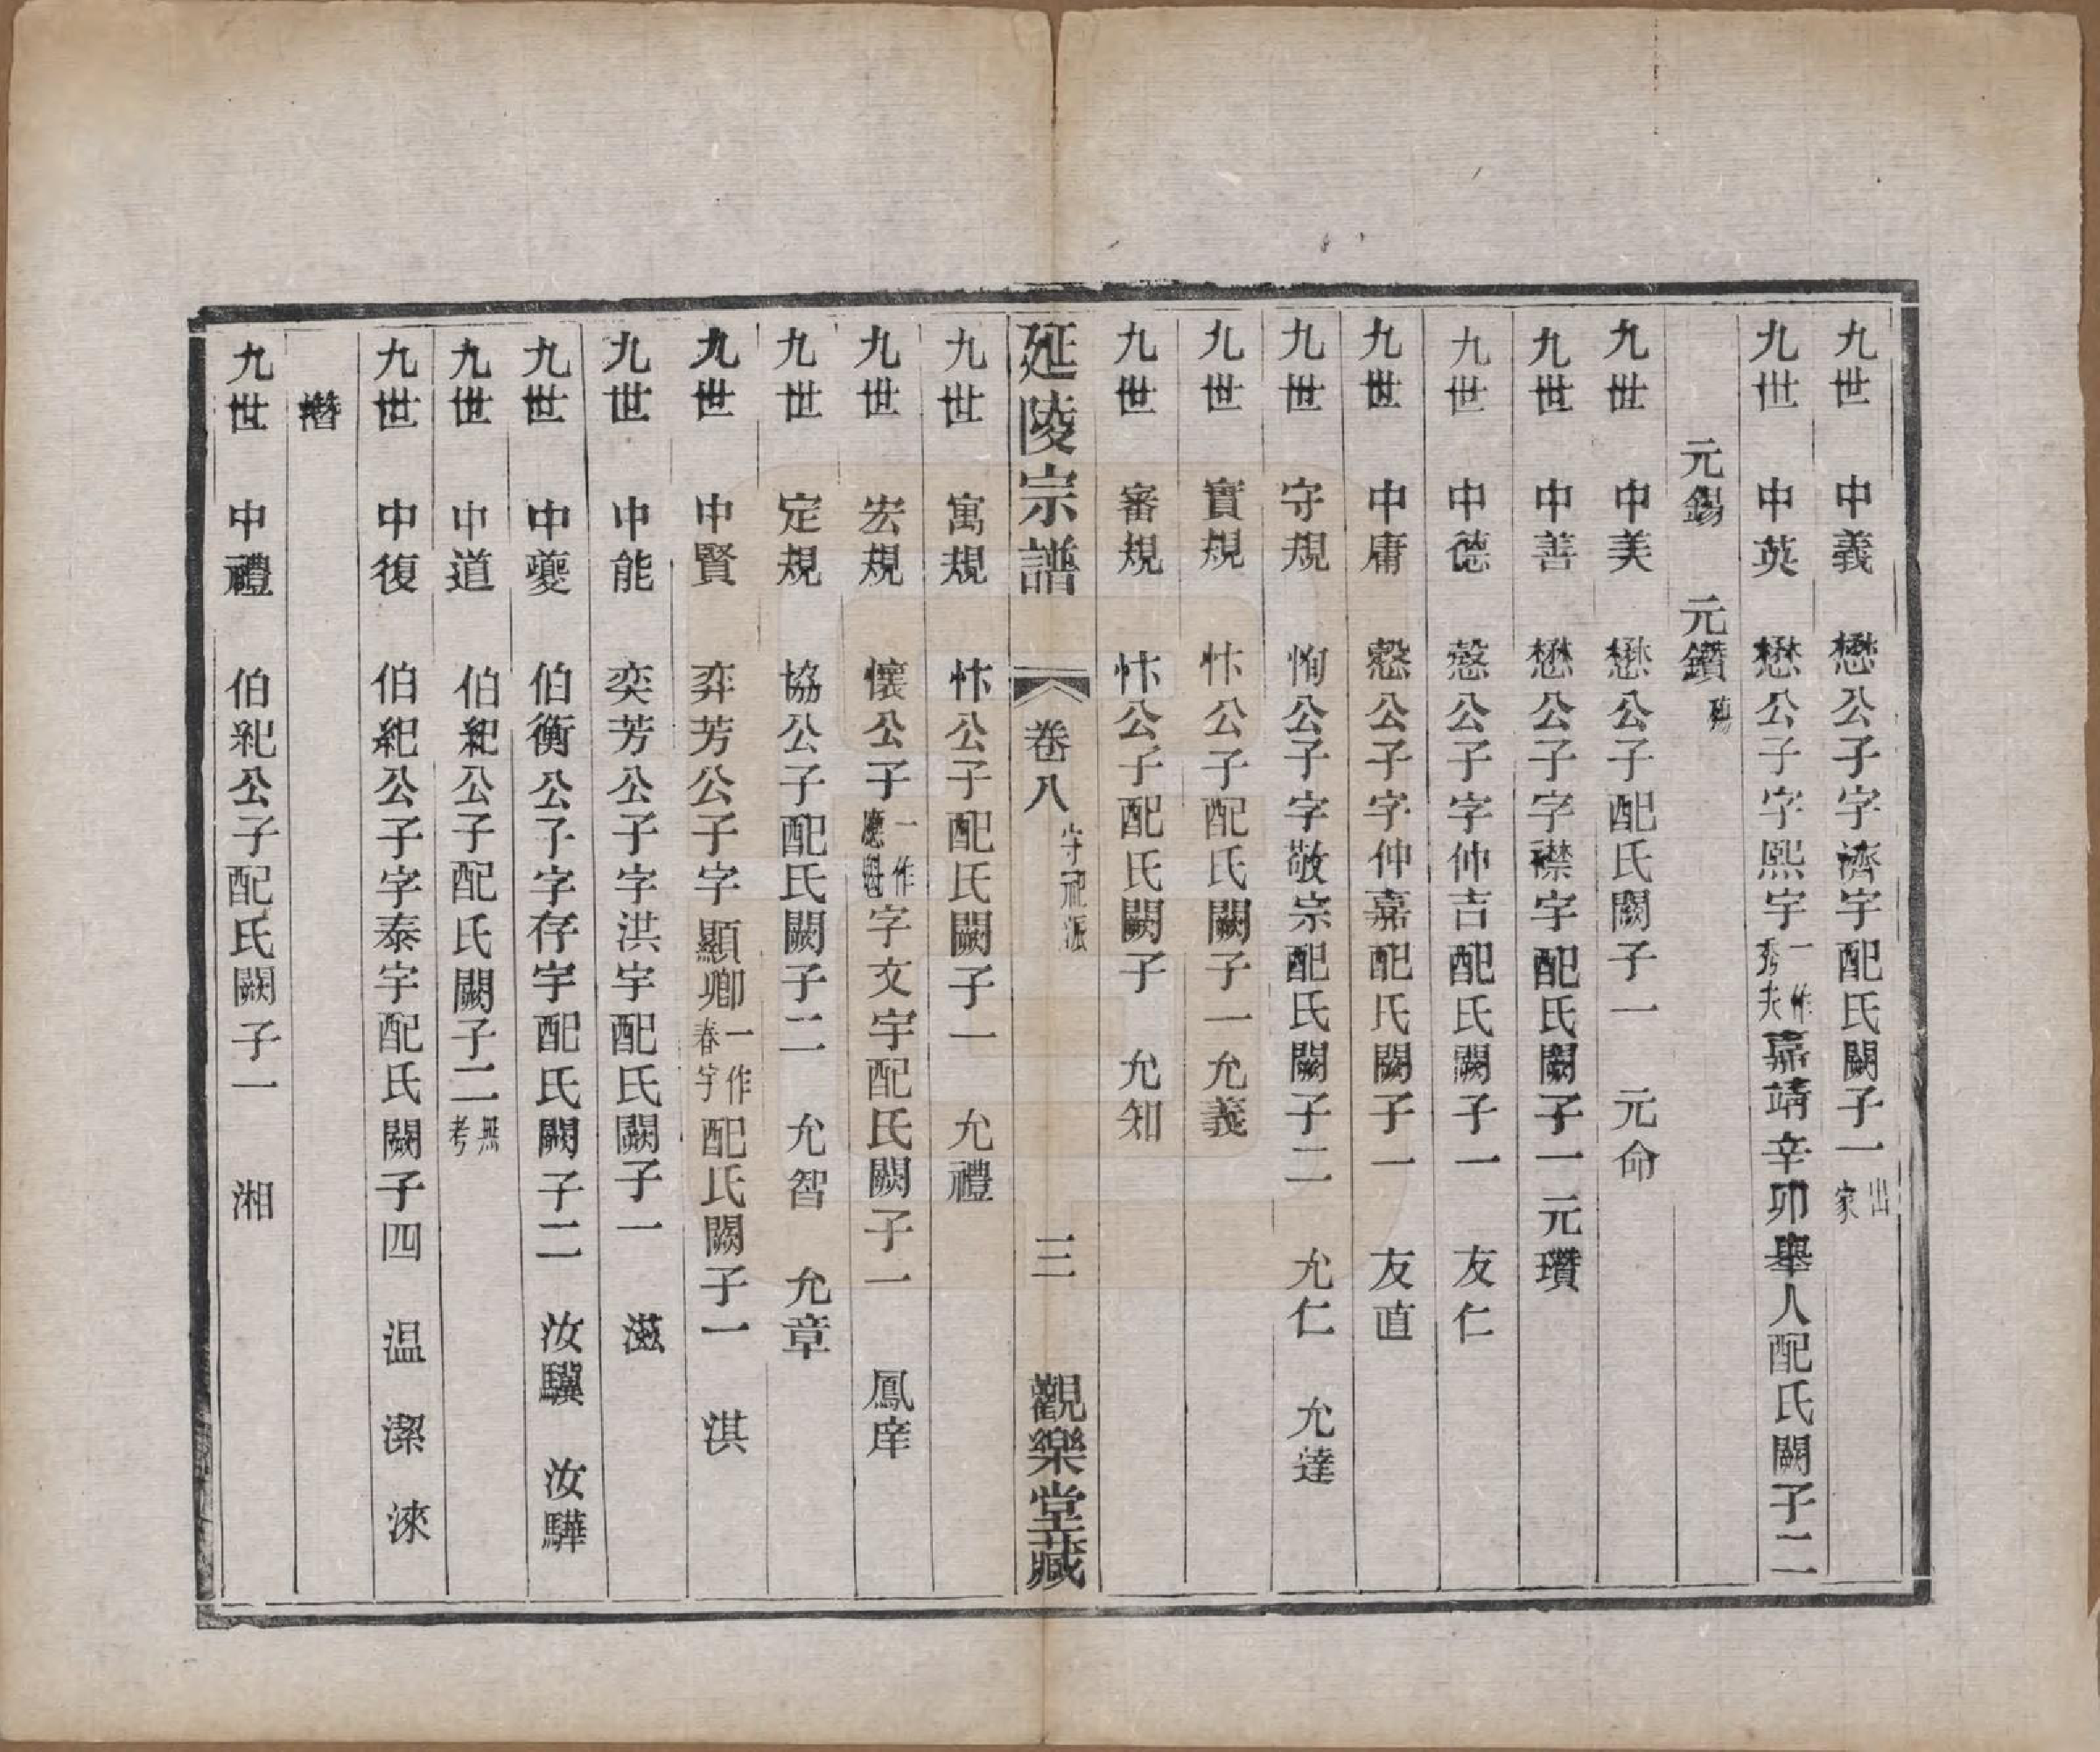 九世　中義　懋公子字濟宇配氏闕子一出家
九世　中英　懋公子字熙宇一作秀夫嘉靖辛卯舉人配氏闕子二
元錫　元鑽
九世　中美　懋公子配氏闕子一　元命
九世　中善　懋公子字襟宇配氏闕子一元瓚
九世　中德　愨公子字仲吉配氏闕子一　友仁
九世　中庸　愨公子字仲嘉配氏闕子一　友直
九世　守規　恂公子字敬宗配氏闕子二　允仁　允達
九世　實規　忭公子配氏闕子一允義
九世　審規　忭公子配氏闕子　允知
延陵宗譜　卷八　守祀派　三　觀樂堂藏
九世　寓規　忭公子配氏闕子一　允禮
九世　宏規　懷公子一作應魁字文宇配氏闕子一　鳳庠
九世　定規　協公子配氏闕子二　允智　允章
九世　中賢　弈芳公子字顯卿一作春宇配氏闕子一　淇
九世　中能　奕芳公子字洪宇配氏闕子一　滋
九世　中夔　伯衡公子字存宇配氏闕子二　汝驥　汝驊
九世　中道　伯紀公子配氏闕子二無考
九世　中復　伯紀公子字泰宇配氏闕子四　温　潔　淶
濳
九世　中禮　伯紀公子配氏闕子一　湘